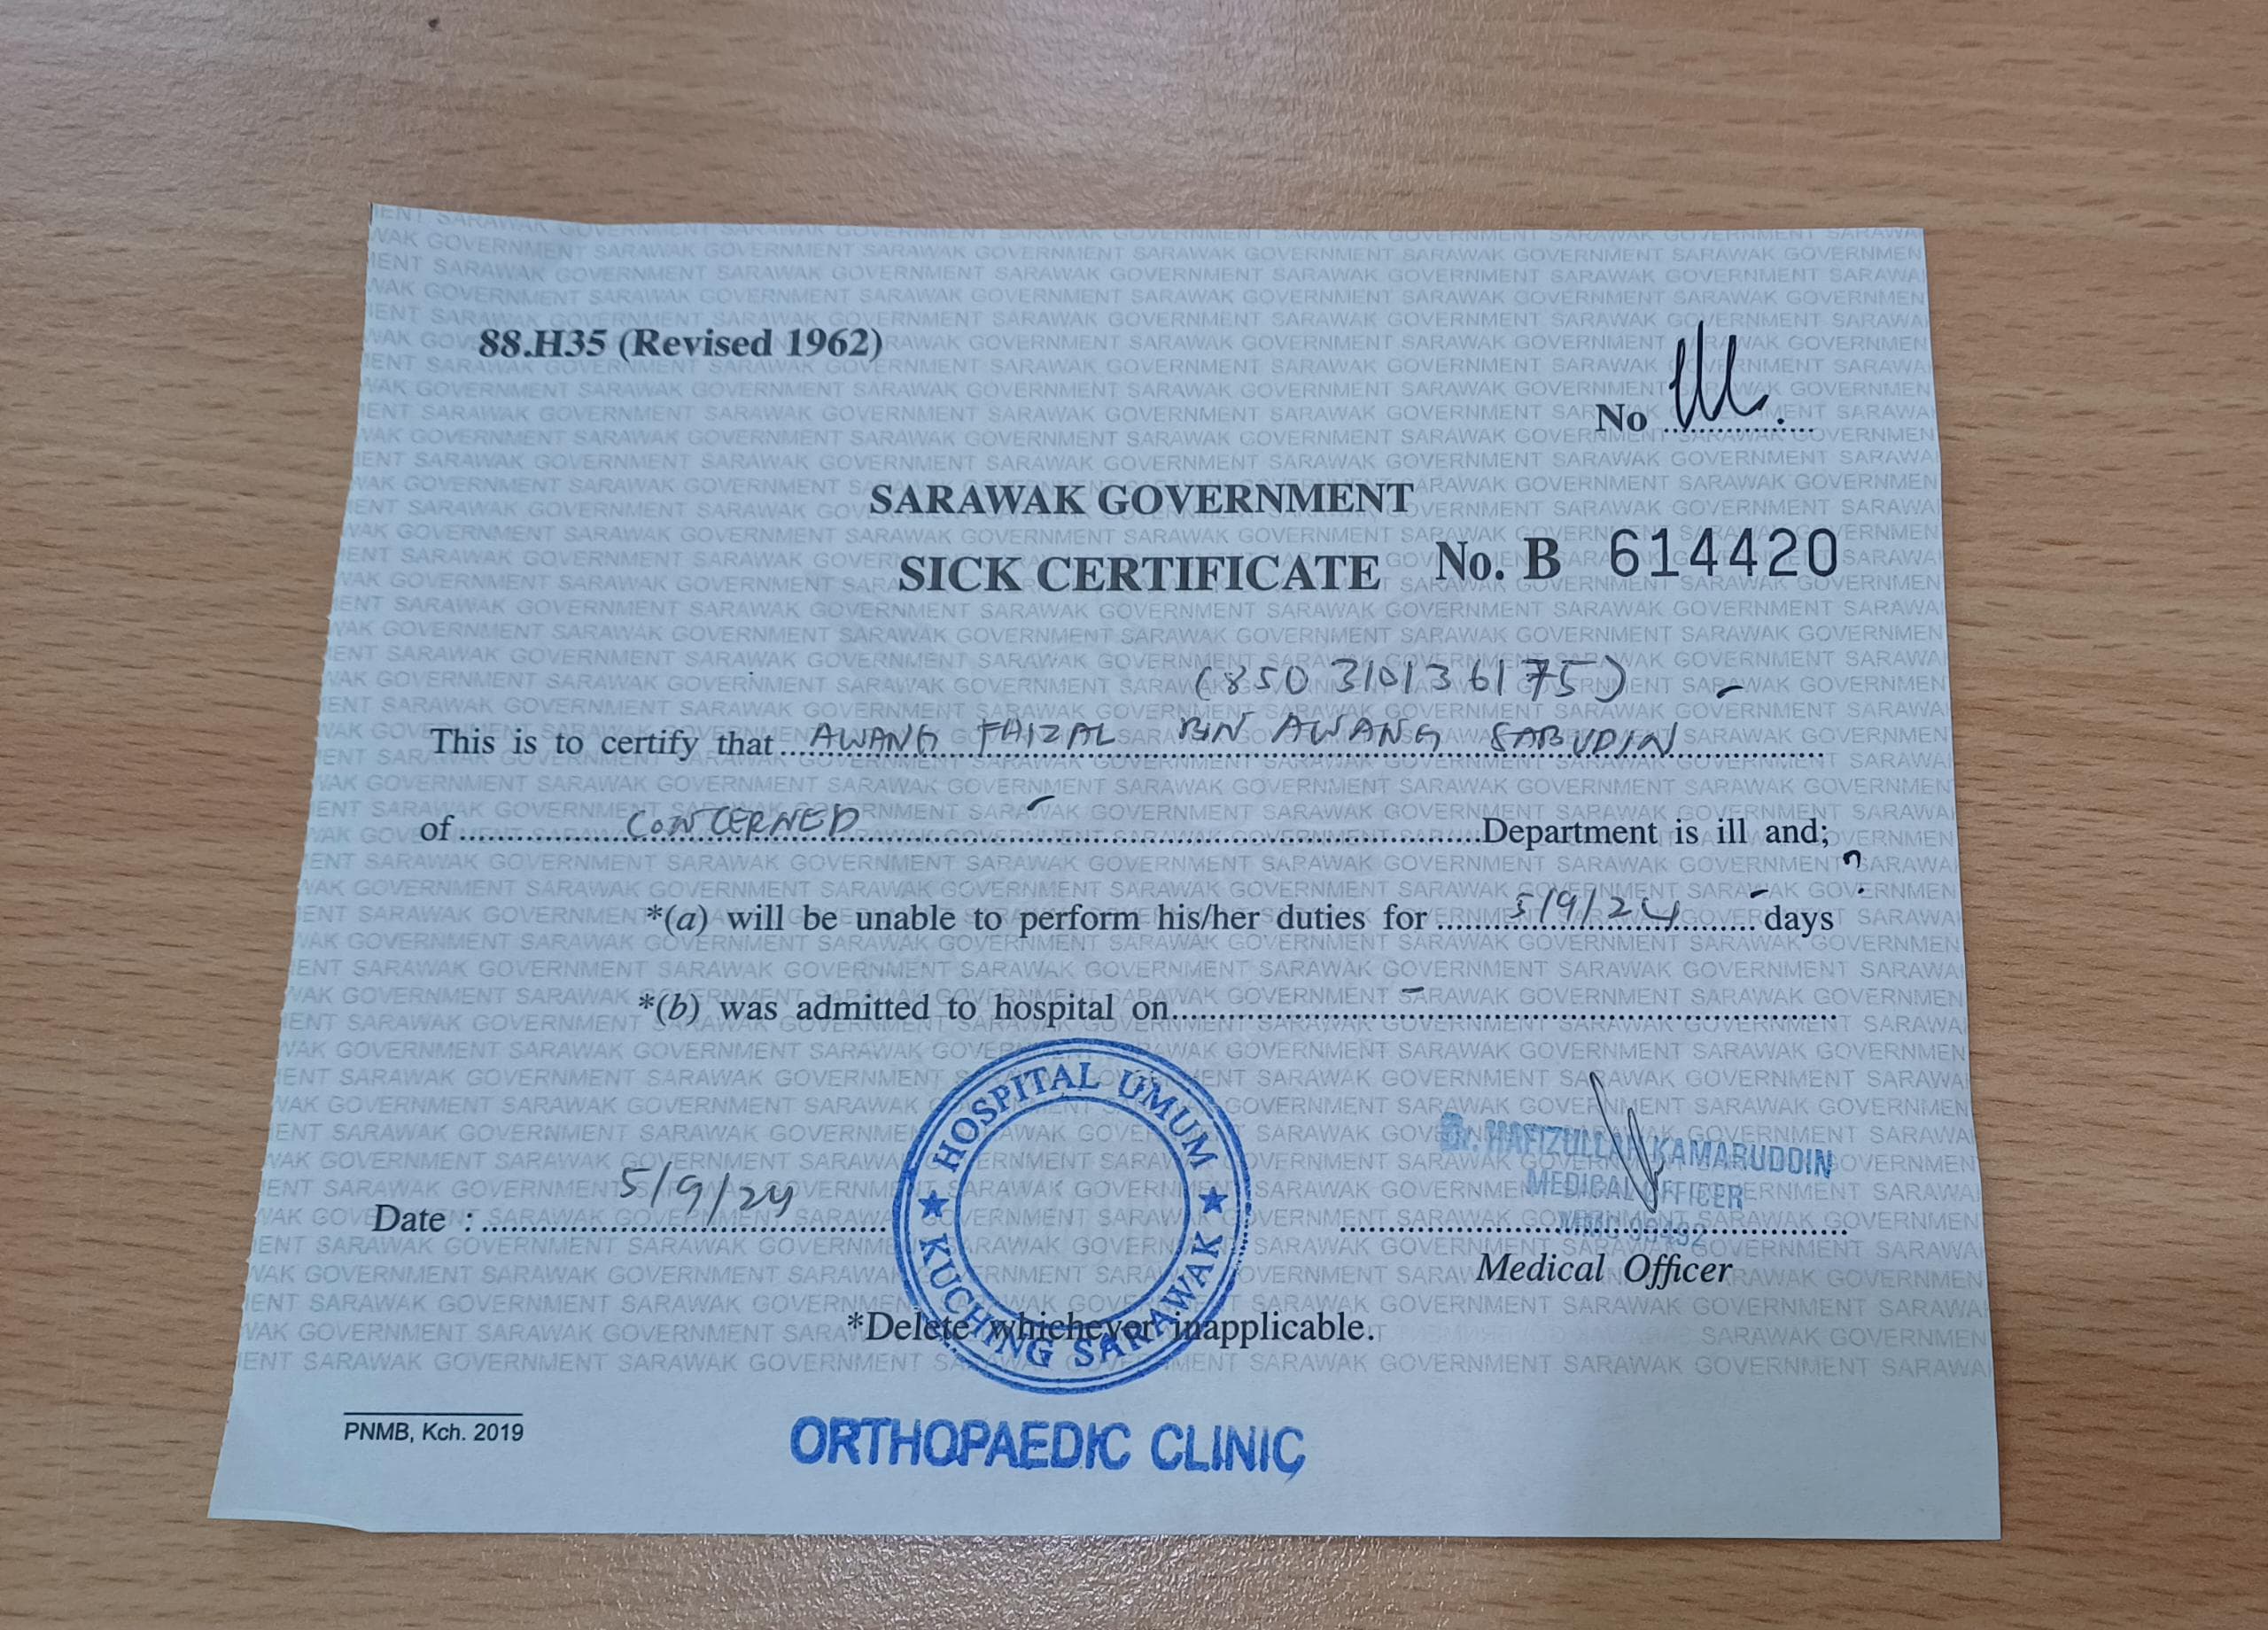 88.H35 (Revised 1962)
No
SARAWAK GOVERNMENT
SICK CERTIFICATE No. B 614420
(850310136175)
This is to certify that AWANG FAIZAL BIN AWANG SABUDIN
of CONCERNED Department is ill and;
*(a) will be unable to perform his/her duties for 5/9/24 days
*(b) was admitted to hospital on
HOSPITAL UMUM
KUCHING SARAWAK
Dr. HAFIZULLAH KAMARUDDIN
MEDICAL OFFICER
Date : 5/9/24
Medical Officer
*Delete whichever inapplicable.
PNMB, Kch. 2019
ORTHOPAEDIC CLINIC